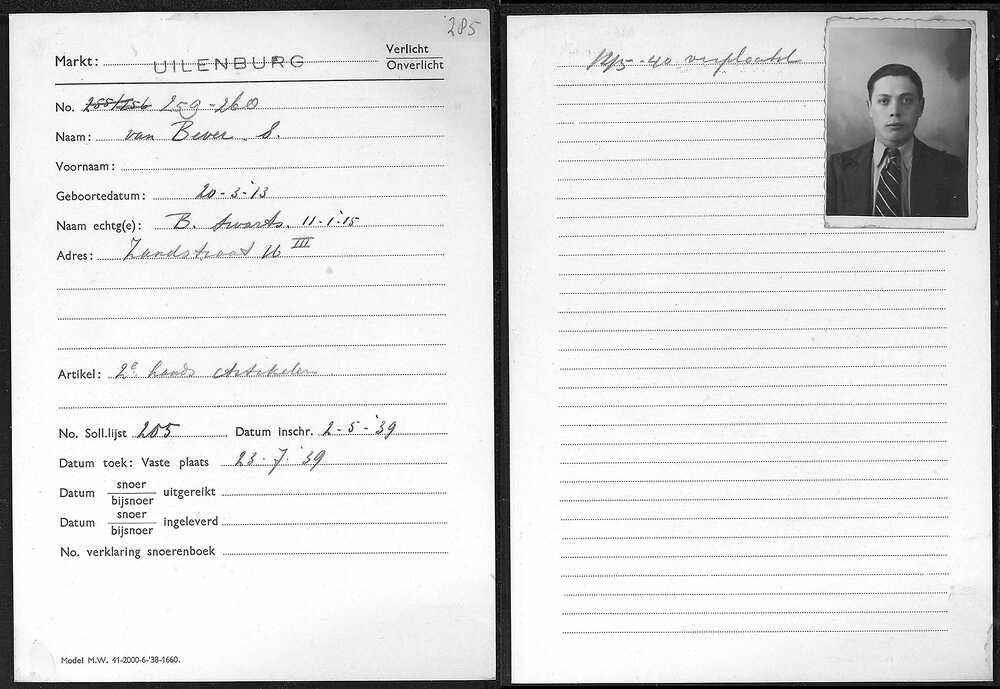 285
Markt: UILENBURG Verlicht
Onverlicht
No. 255/256 259-260
Naam: van Bever S.
Voornaam:
Geboortedatum: 20-3-'13
Naam echtg(e): B. Swarts. 11-1-'15
Adres: Zandstraat 16 III
Artikel: 2e hands Artikelen
No. Soll.lijst 205 Datum inschr. 2-5-'39
Datum toek: Vaste plaats 23-7-'39
Datum snoer
bijsnoer uitgereikt
Datum snoer
bijsnoer ingeleverd
No. verklaring snoerenboek
Model M.W. 41-2000-6-'38-1660.
-40 verplaatst